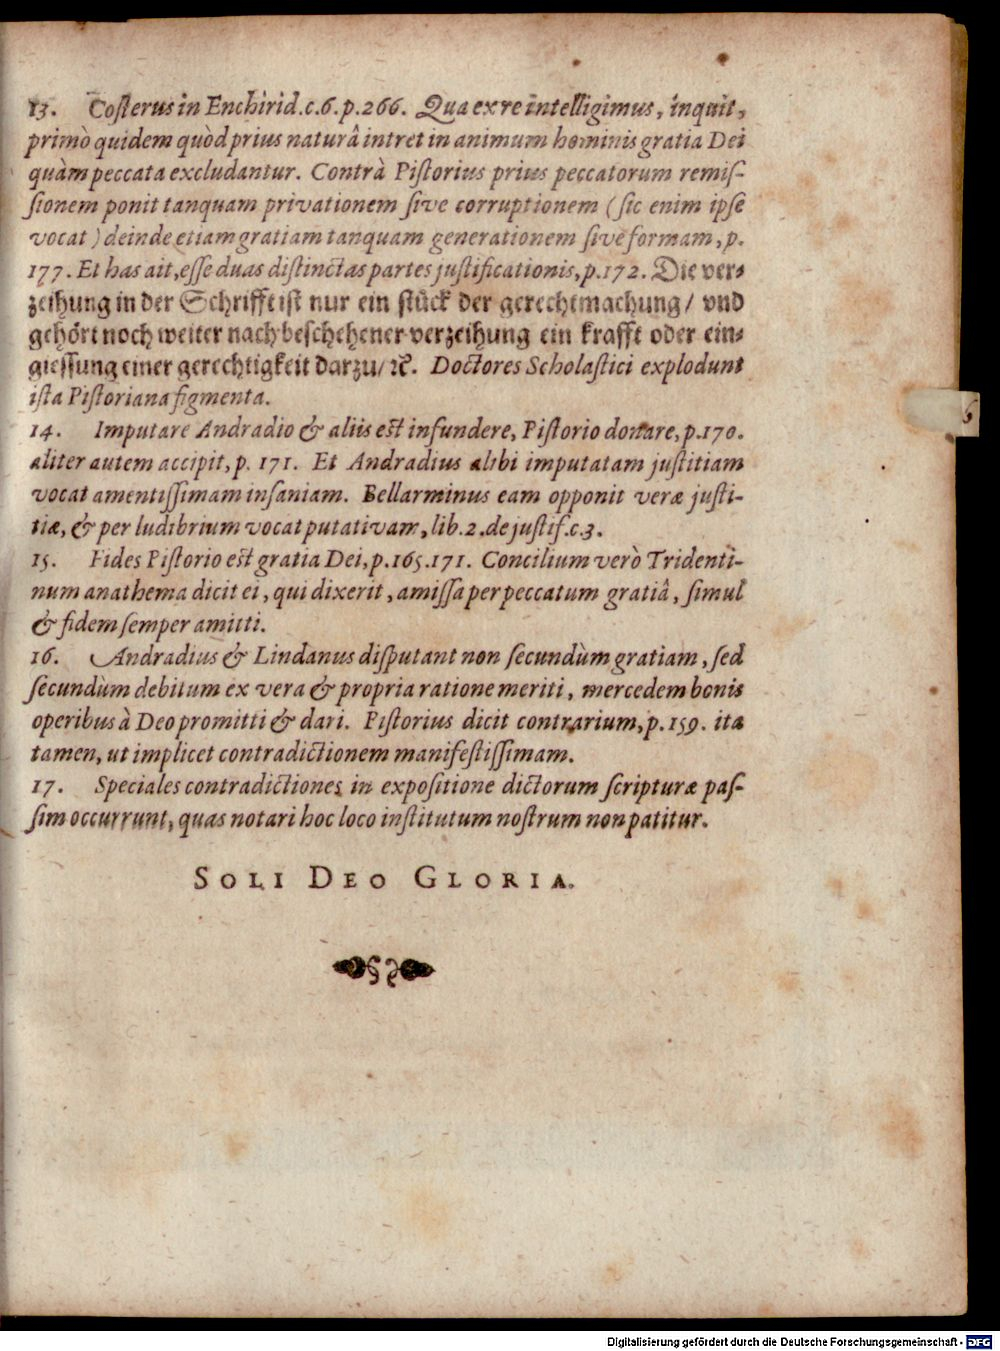 13. Costerus in Enchirid.c.6.p.266. Qua ex re intelligimus, inquit,
primò quidem quòd prius naturâ intret in animum hominis gratia Dei
quàm peccata excludantur. Contrà Pistorius prius peccatorum remis-
sionem ponit tanquam privationem sive corruptionem (sic enim ipse
vocat) deinde etiam gratiam tanquam generationem sive formam, p.
177. Et has ait, esse duas distinctas partes justificationis, p.172. Die ver-
zeihung in der Schrifft ist nur ein stück der gerechtmachung/ vnd
gehört noch weiter nach beschehener verzeihung ein krafft oder ein-
giessung einer gerechtigkeit darzu/ ꝛc. Doctores Scholastici explodunt
ista Pistoriana figmenta.
14. Imputare Andradio & aliis est infundere, Pistorio donare, p.170.
aliter autem accipit, p. 171. Et Andradius alibi imputatam justitiam
vocat amentissimam insaniam. Bellarminus eam opponit veræ justi-
tiæ, & per ludibrium vocat putativam, lib.2.de justif.c.3.
15. Fides Pistorio est gratia Dei, p.165.171. Concilium verò Tridenti-
num anathema dicit ei, qui dixerit, amissa per peccatum gratiâ, simul
& fidem semper amitti.
16. Andradius & Lindanus disputant non secundùm gratiam, sed
secundùm debitum ex vera & propria ratione meriti, mercedem bonis
operibus à Deo promitti & dari. Pistorius dicit contrarium, p.159. ita
tamen, ut implicet contradictionem manifestissimam.
17. Speciales contradictiones in expositione dictorum scripturæ pas-
sim occurrunt, quas notari hoc loco institutum nostrum non patitur.
SOLI DEO GLORIA.
6
Digitalisierung gefördert durch die Deutsche Forschungsgemeinschaft - DFG